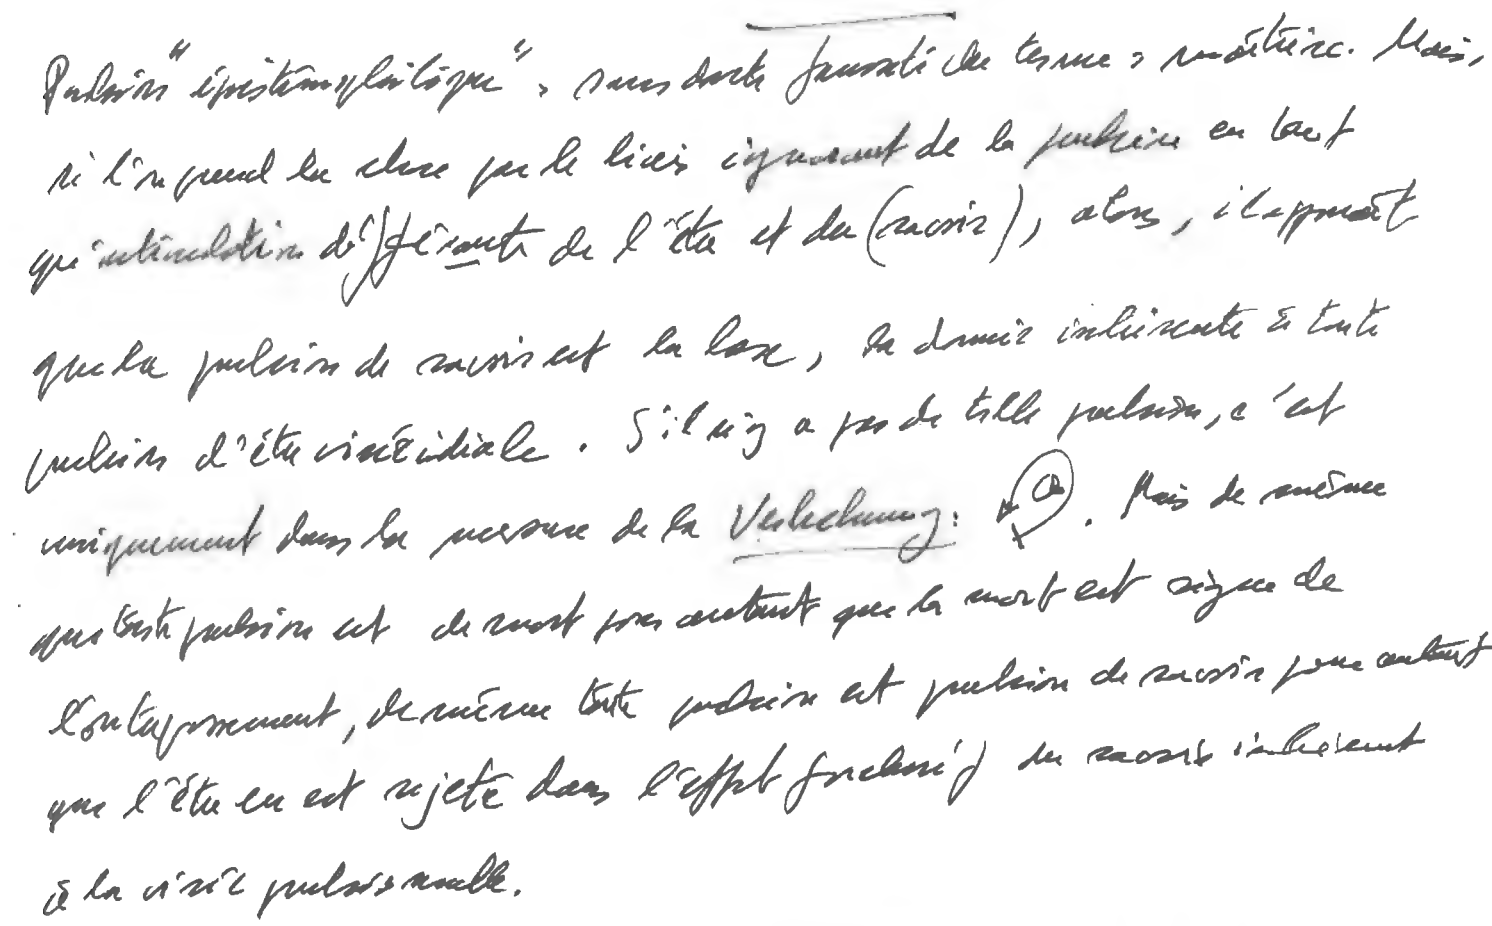 Pulsion "épistémophilique", sans doute fausseté du terme : maîtrise. Mais,
si l'on prend la chose par le biais ignorant de la pulsion en tant
qu'articulation différante de l'être et du (savoir), alors, il apparaît
que la pulsion de savoir est la base, la donnée inhérente à toute
pulsion d'être viscérale. S'il n'y a pas de telle pulsion, c'est
uniquement dans la mesure de la Verkehrung : . Mais de même
que toute pulsion est de mort pour autant que la mort est signe de
l'outrepassement, de même toute pulsion est pulsion de savoir pour autant
que l'être en est rejeté dans l'effet forclusif du savoir inhérent
à la visée pulsionnelle.